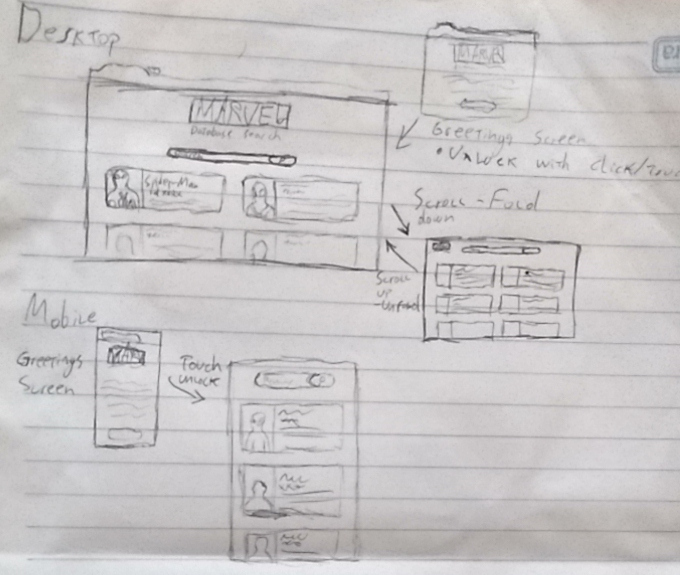 Desktop
MARVEL
Database search
Spider-Man
MARVEL
Greetings Screen
• Unlock with click/touc
Scroll - Fold
down
Scroll
up
-unfold
Mobile
Greetings
Screen
MARVEL
Touch
unlock